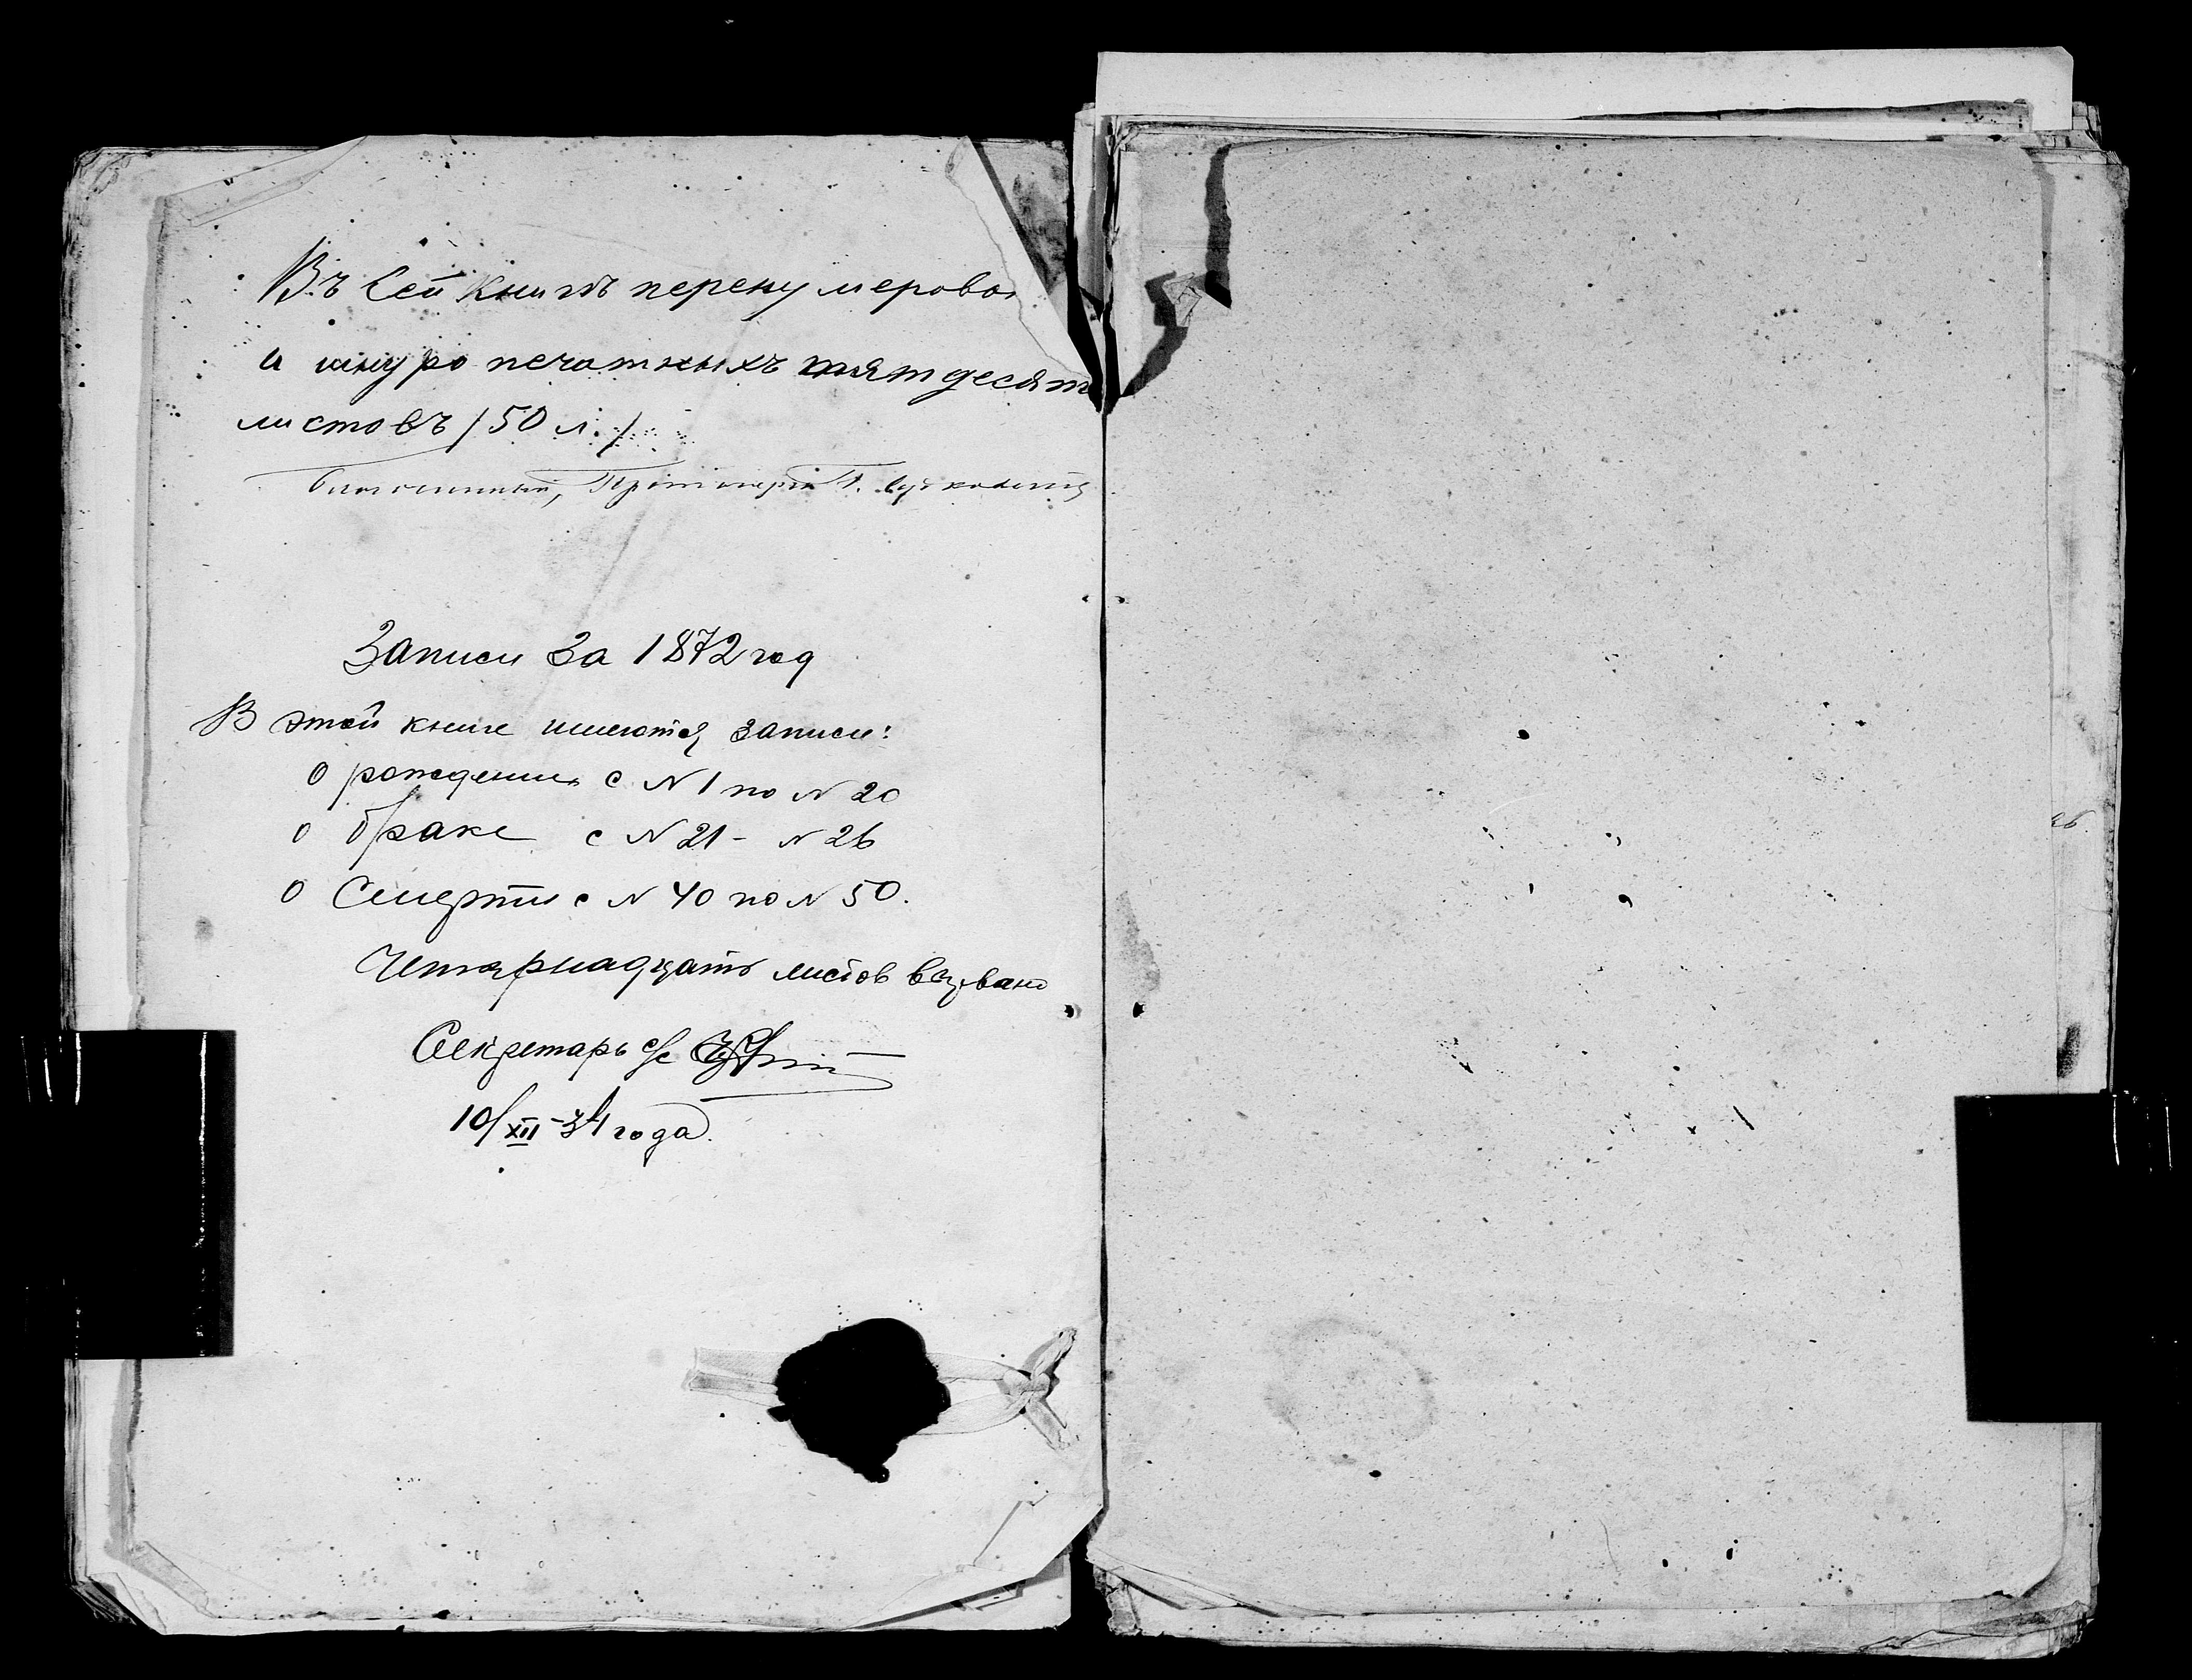 Въ Сей Книгѣ перенумерова
и шнуро печатныхъ пятдесят
листовъ /50 л./
Благочинный, Протоиерей Г.
Записи За 1872 год
В этой книге имеются записи:
о рождении с N 1 по N 20
о браке с N 21 - N 26
о Смерти с N 40 по N 50.
Четырнадцать листов вырвано
Секретарь с/с
10/XII-34 года.